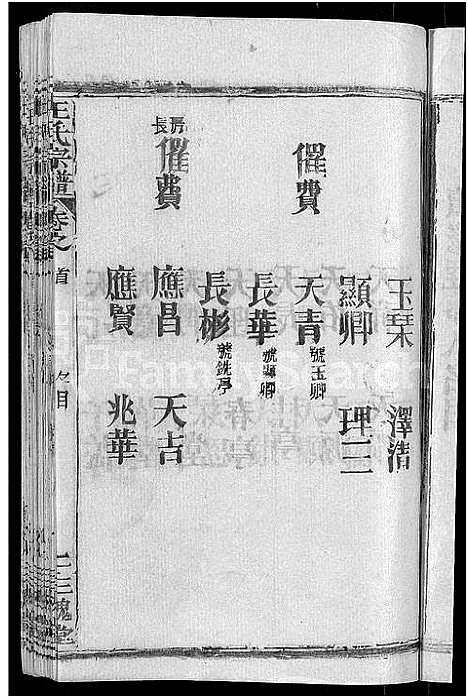 玉琹　澤清
顯卿　理三
催費　天青號玉卿
長華號顯卿
長彬號銑亭
房長催費　應昌　天吉
應賢　兆華
王氏宗譜　卷之首　名目　三槐堂